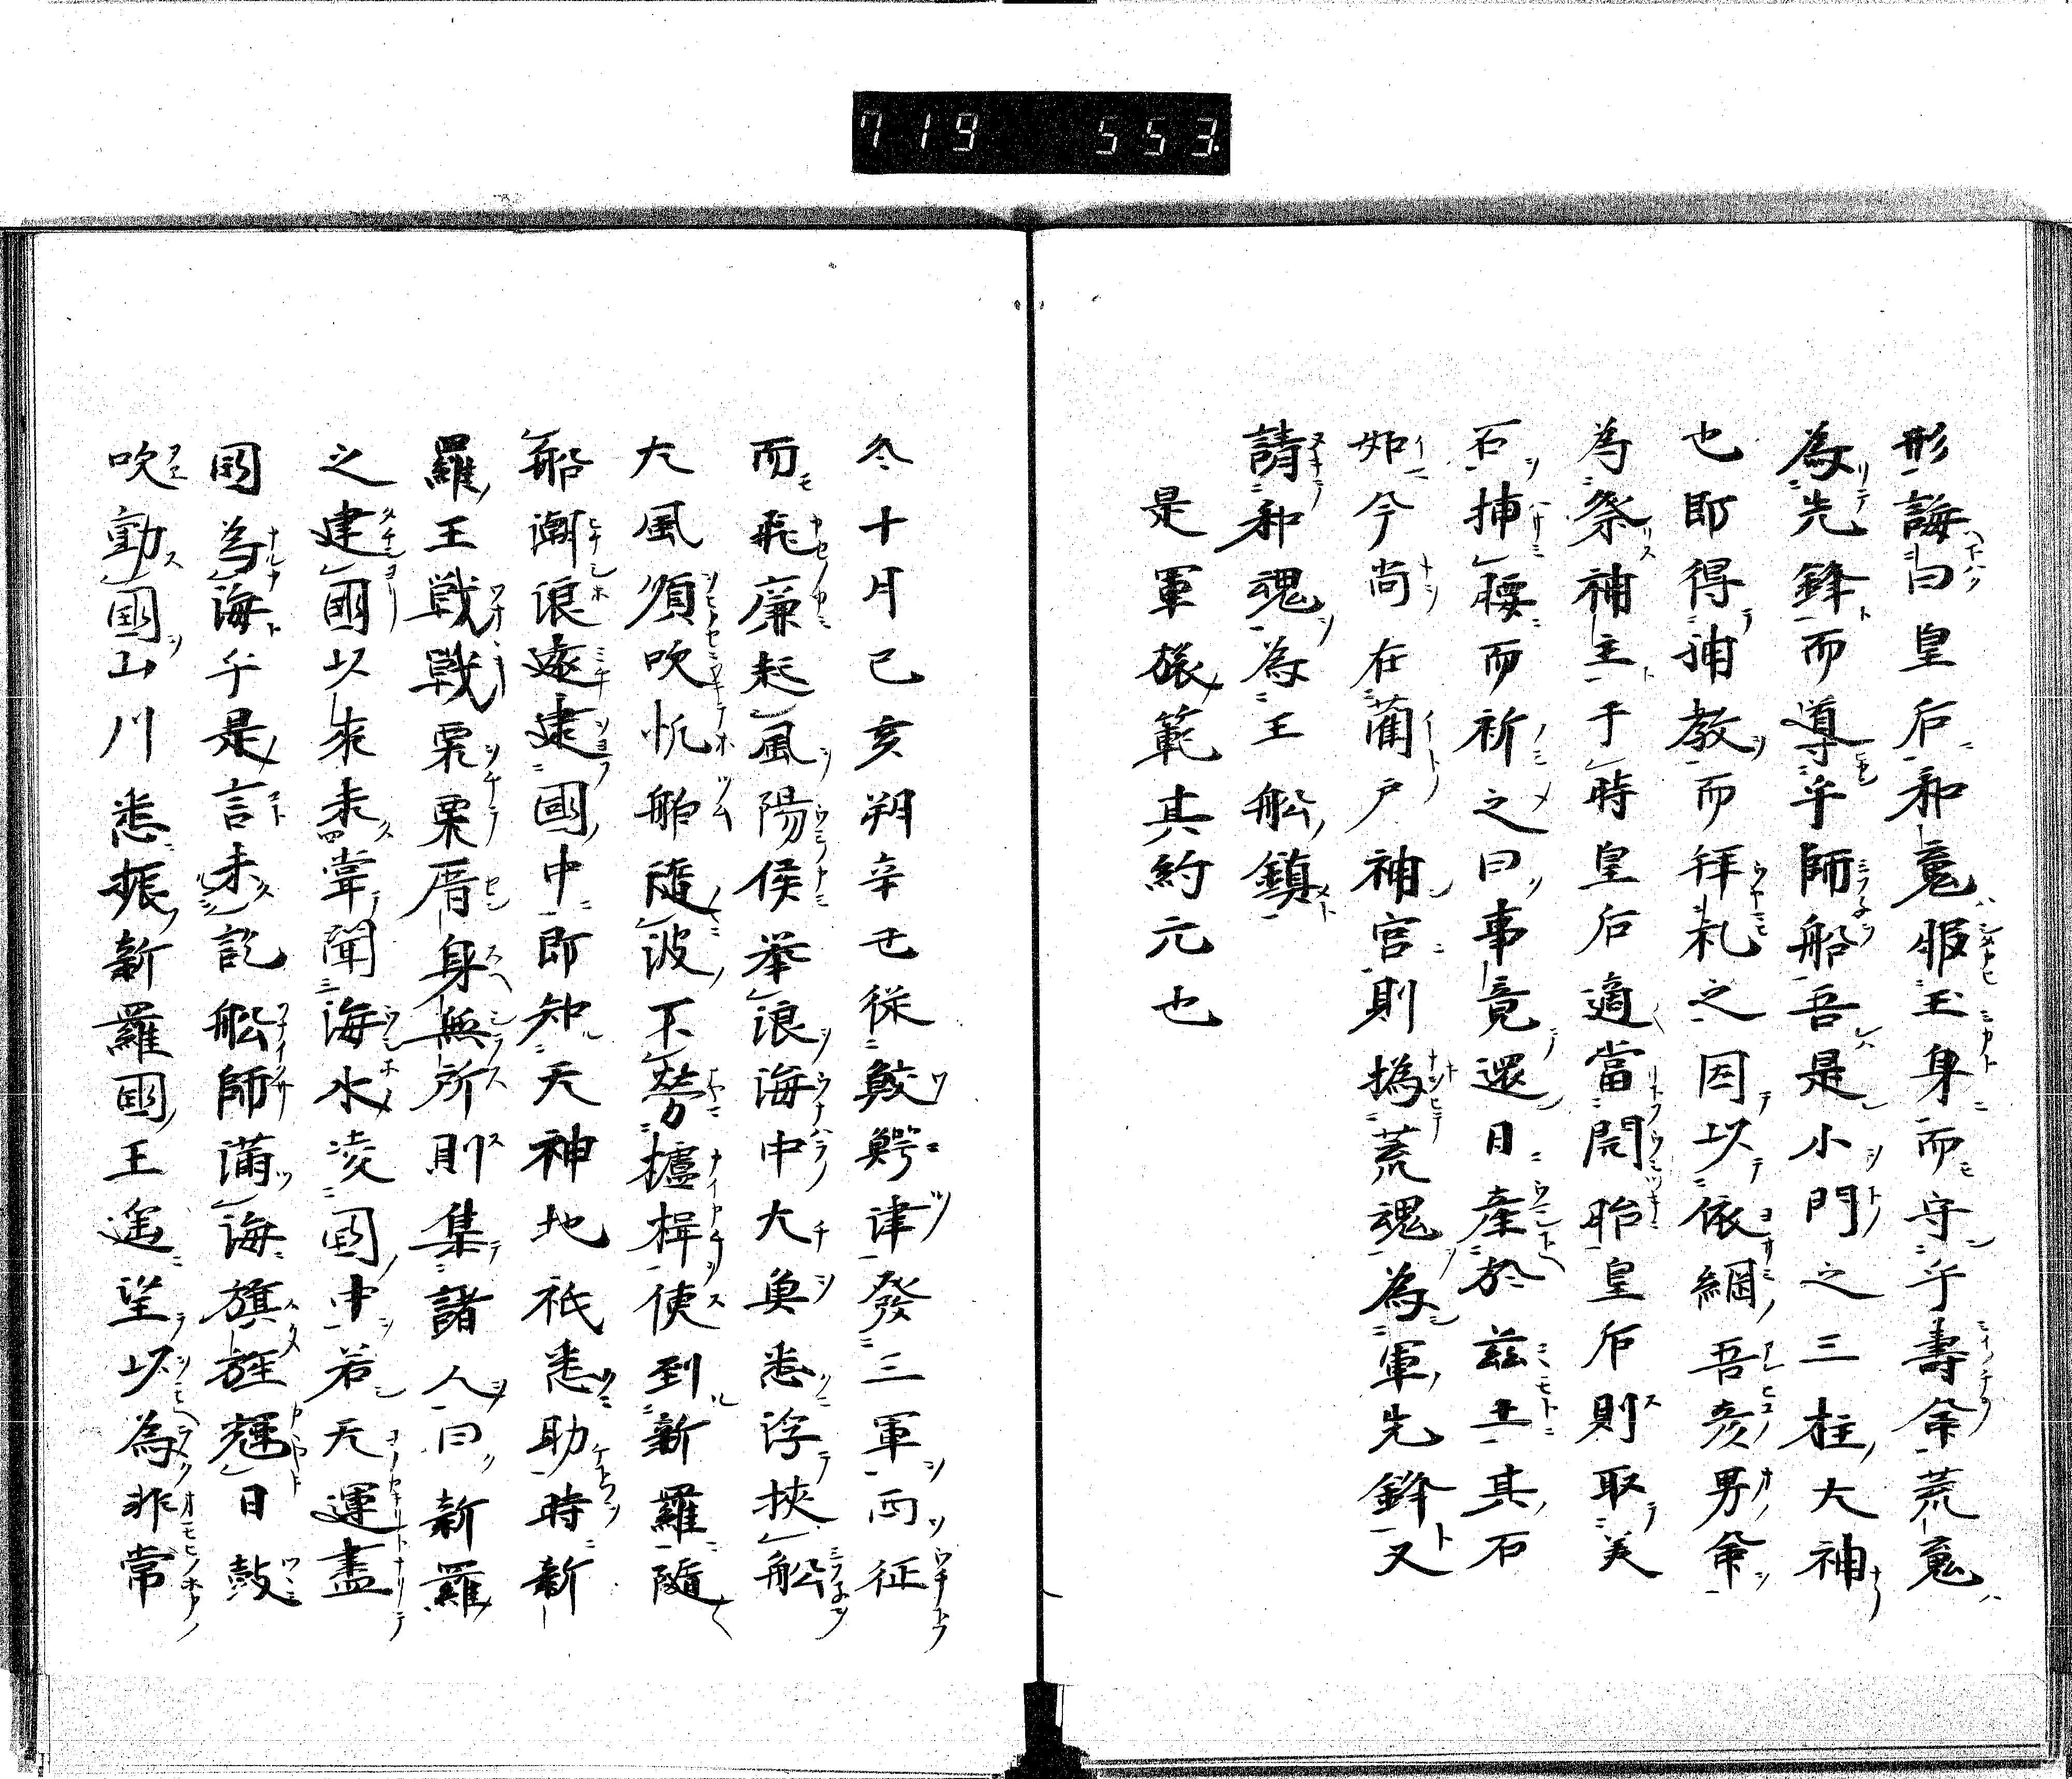 719 553.
形誨曰皇后和䰟服玉身而守乎壽命荒䰟
為先鋒而導乎師船吾是小門之三柱大神
也即得神教而拜礼之因以依網吾彦男命
為祭神主于時皇后適當開胎皇后則取美
石插腰而祈之曰事竟還日産於茲土其石
如今尚在藺戸神宮則撝荒魂為軍先鋒又
請和魂為王舩鎮
是軍旅範其約元也
冬十月己亥朔辛丑從鮫鰐津發三軍西征
而飛廉起風陽侯举浪海中大魚悉浮挾舩
大風順吹帆舶随波不勞攄楫使到新羅隨
船潮浪遠逮國中即知天神地祇悉助時新
羅王戦戦栗栗厝身無所則集諸人曰新羅
之建國以來未甞聞海水凌國中若天運盡
國為海乎是言未訖舩師満海旗旌輝日鼓
吹動國山川悉振新羅國王遥望以為非常